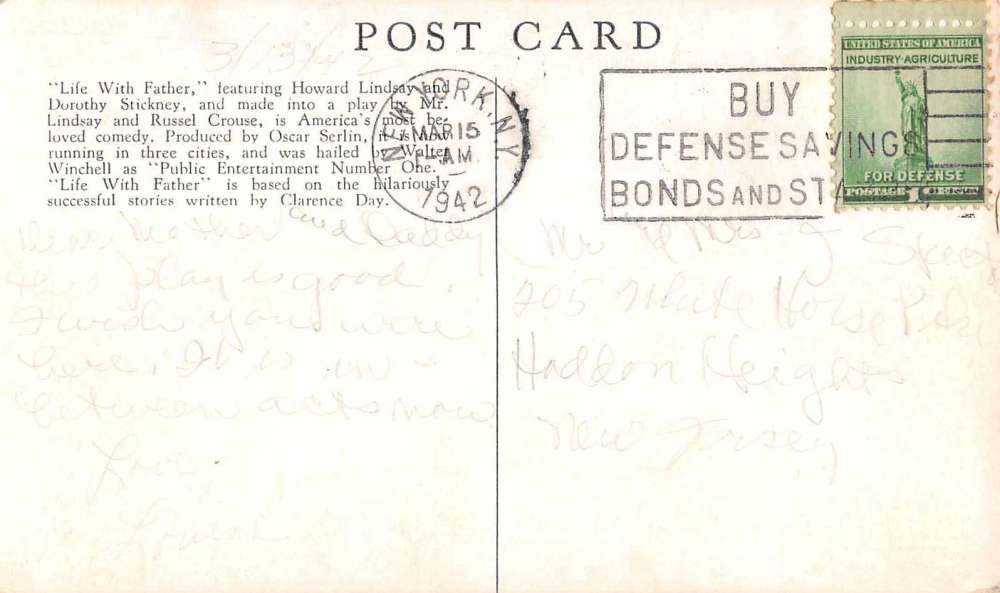 POST CARD
"Life With Father," featuring Howard Lindsay and
Dorothy Stickney, and made into a play by Mr.
Lindsay and Russel Crouse, is America's most be-
loved comedy. Produced by Oscar Serlin, it is now
running in three cities, and was hailed by Walter
Winchell as "Public Entertainment Number One."
"Life With Father" is based on the hilariously
successful stories written by Clarence Day.
NEW YORK, N.Y.
MAR 15
AM
1942
BUY
DEFENSE SAVINGS
BONDS AND STA
UNITED STATES OF AMERICA
INDUSTRY·AGRICULTURE
FOR DEFENSE
POSTAGE 1
Dear Mother and Daddy
This play is good.
I wish you were
here. It is in -
between acts now
Love
Louise
Mr & Mrs J
205 White Horse Pike
Haddon Heights
New Jersey